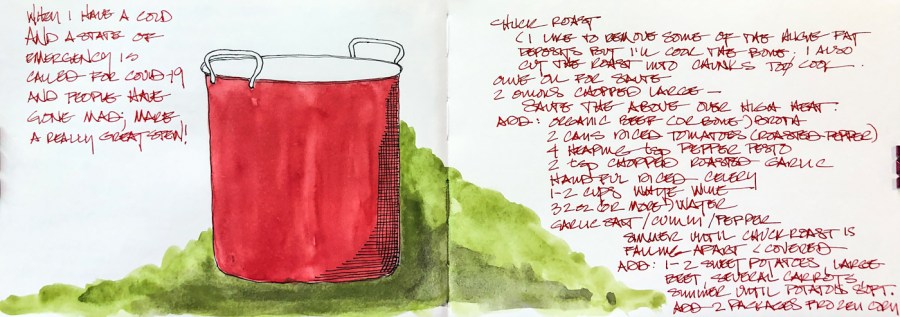 WHEN I HAVE A COLD
AND A STATE OF
EMERGENCY IS
CALLED FOR COVID-19
AND PEOPLE HAVE
GONE MAD; MAKE
A REALLY GREAT STEW!
CHUCK ROAST
(I LIKE TO REMOVE SOME OF THE HUGE FAT
DEPOSITS BUT I'LL COOK THE BONE. I ALSO
CUT THE ROAST INTO CHUNKS TO COOK.
OLIVE OIL FOR SAUTE
2 ONIONS CHOPPED LARGE —
SAUTE THE ABOVE OVER HIGH HEAT.
ADD: ORGANIC BEEF (OR BONE) BROTH
2 CANS DICED TOMATOES (ROASTED PEPPER)
4 HEAPING tsp PEPPER PESTO
2 tsp CHOPPED ROASTED GARLIC
HANDFUL DICED CELERY
1-2 CUPS WHITE WINE
32 oz (OR MORE) WATER
GARLIC SALT/CUMIN/PEPPER
SIMMER UNTIL CHUCK ROAST IS
FALLING APART (COVERED
ADD: 1-2 SWEET POTATOES, LARGE
BEET, SEVERAL CARROTS,
SIMMER UNTIL POTATOES SOFT.
ADD 2 PACKAGES FROZEN CORN